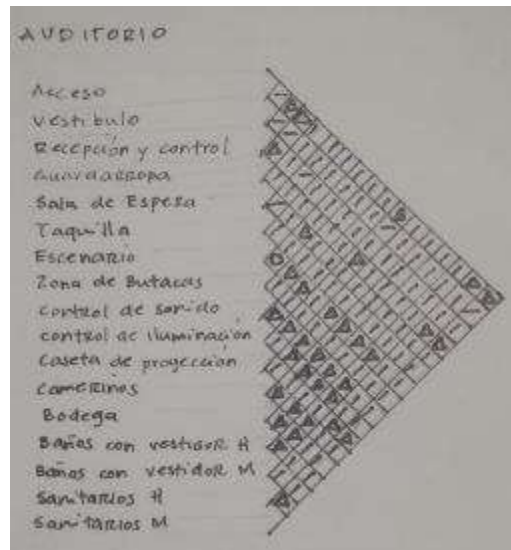 AUDITORIO
Acceso
Vestibulo
Recepción y control
Guardarropa
Sala de Espera
Taquilla
Escenario
Zona de Butacas
control de sonido
control de iluminación
Caseta de proyección
Camerinos
Bodega
Baños con vestidor H
Baños con vestidor M
Sanitarios H
Sanitarios M